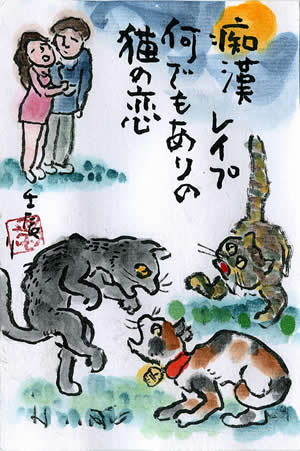 痴漢 レイプ
何でもありの
猫の恋